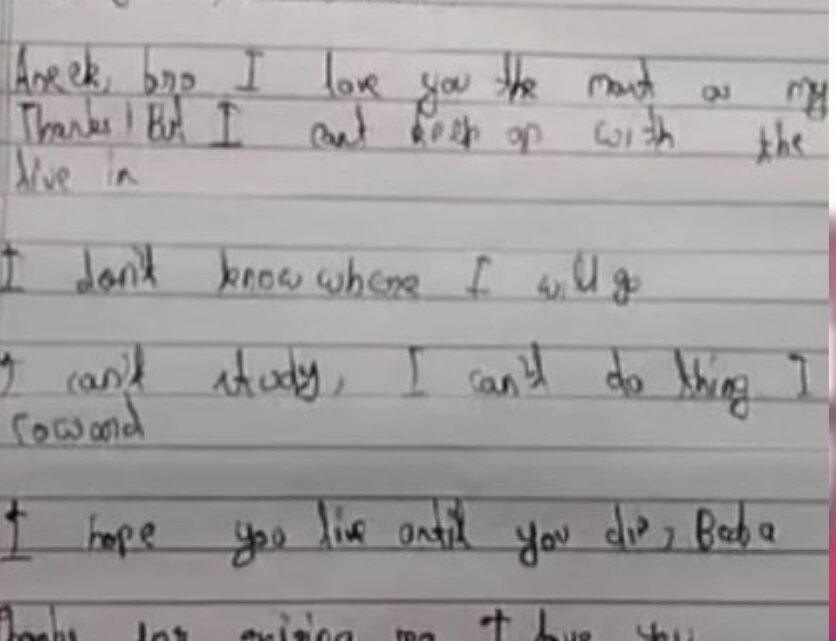 Aneek, bro I love you the most as my
Thanks! But I cant keep up with the
live in
I don't know where I will go
I can't study, I can't do thing I
coward
I hope you live until you die, Baba
Thanks for raising me I love you